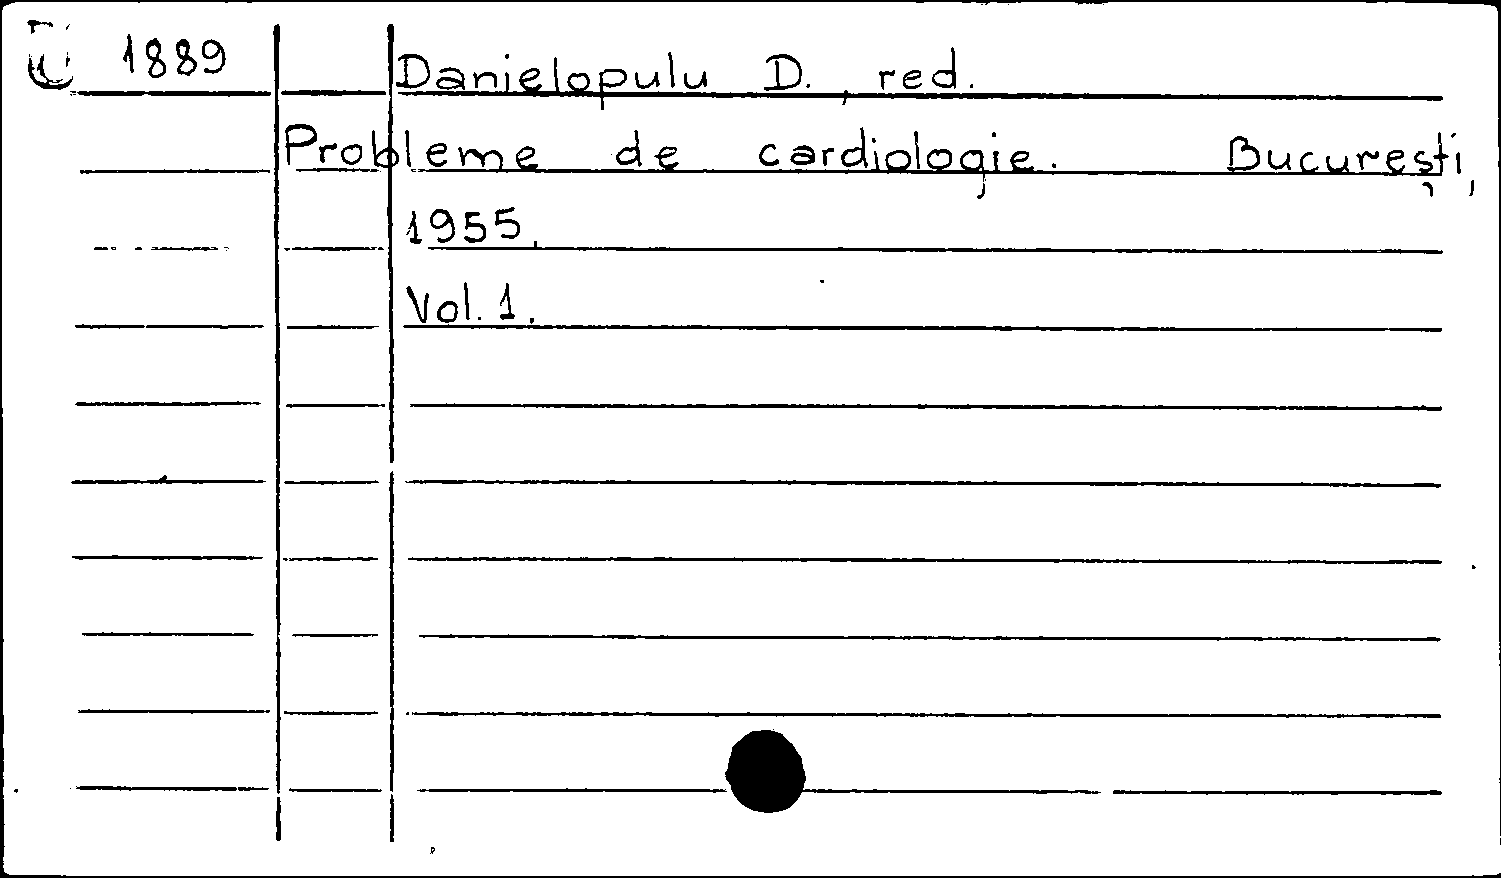 U 1889 Danielopulu D., red.
Probleme de cardiologie. București,
1955.
Vol. 1.